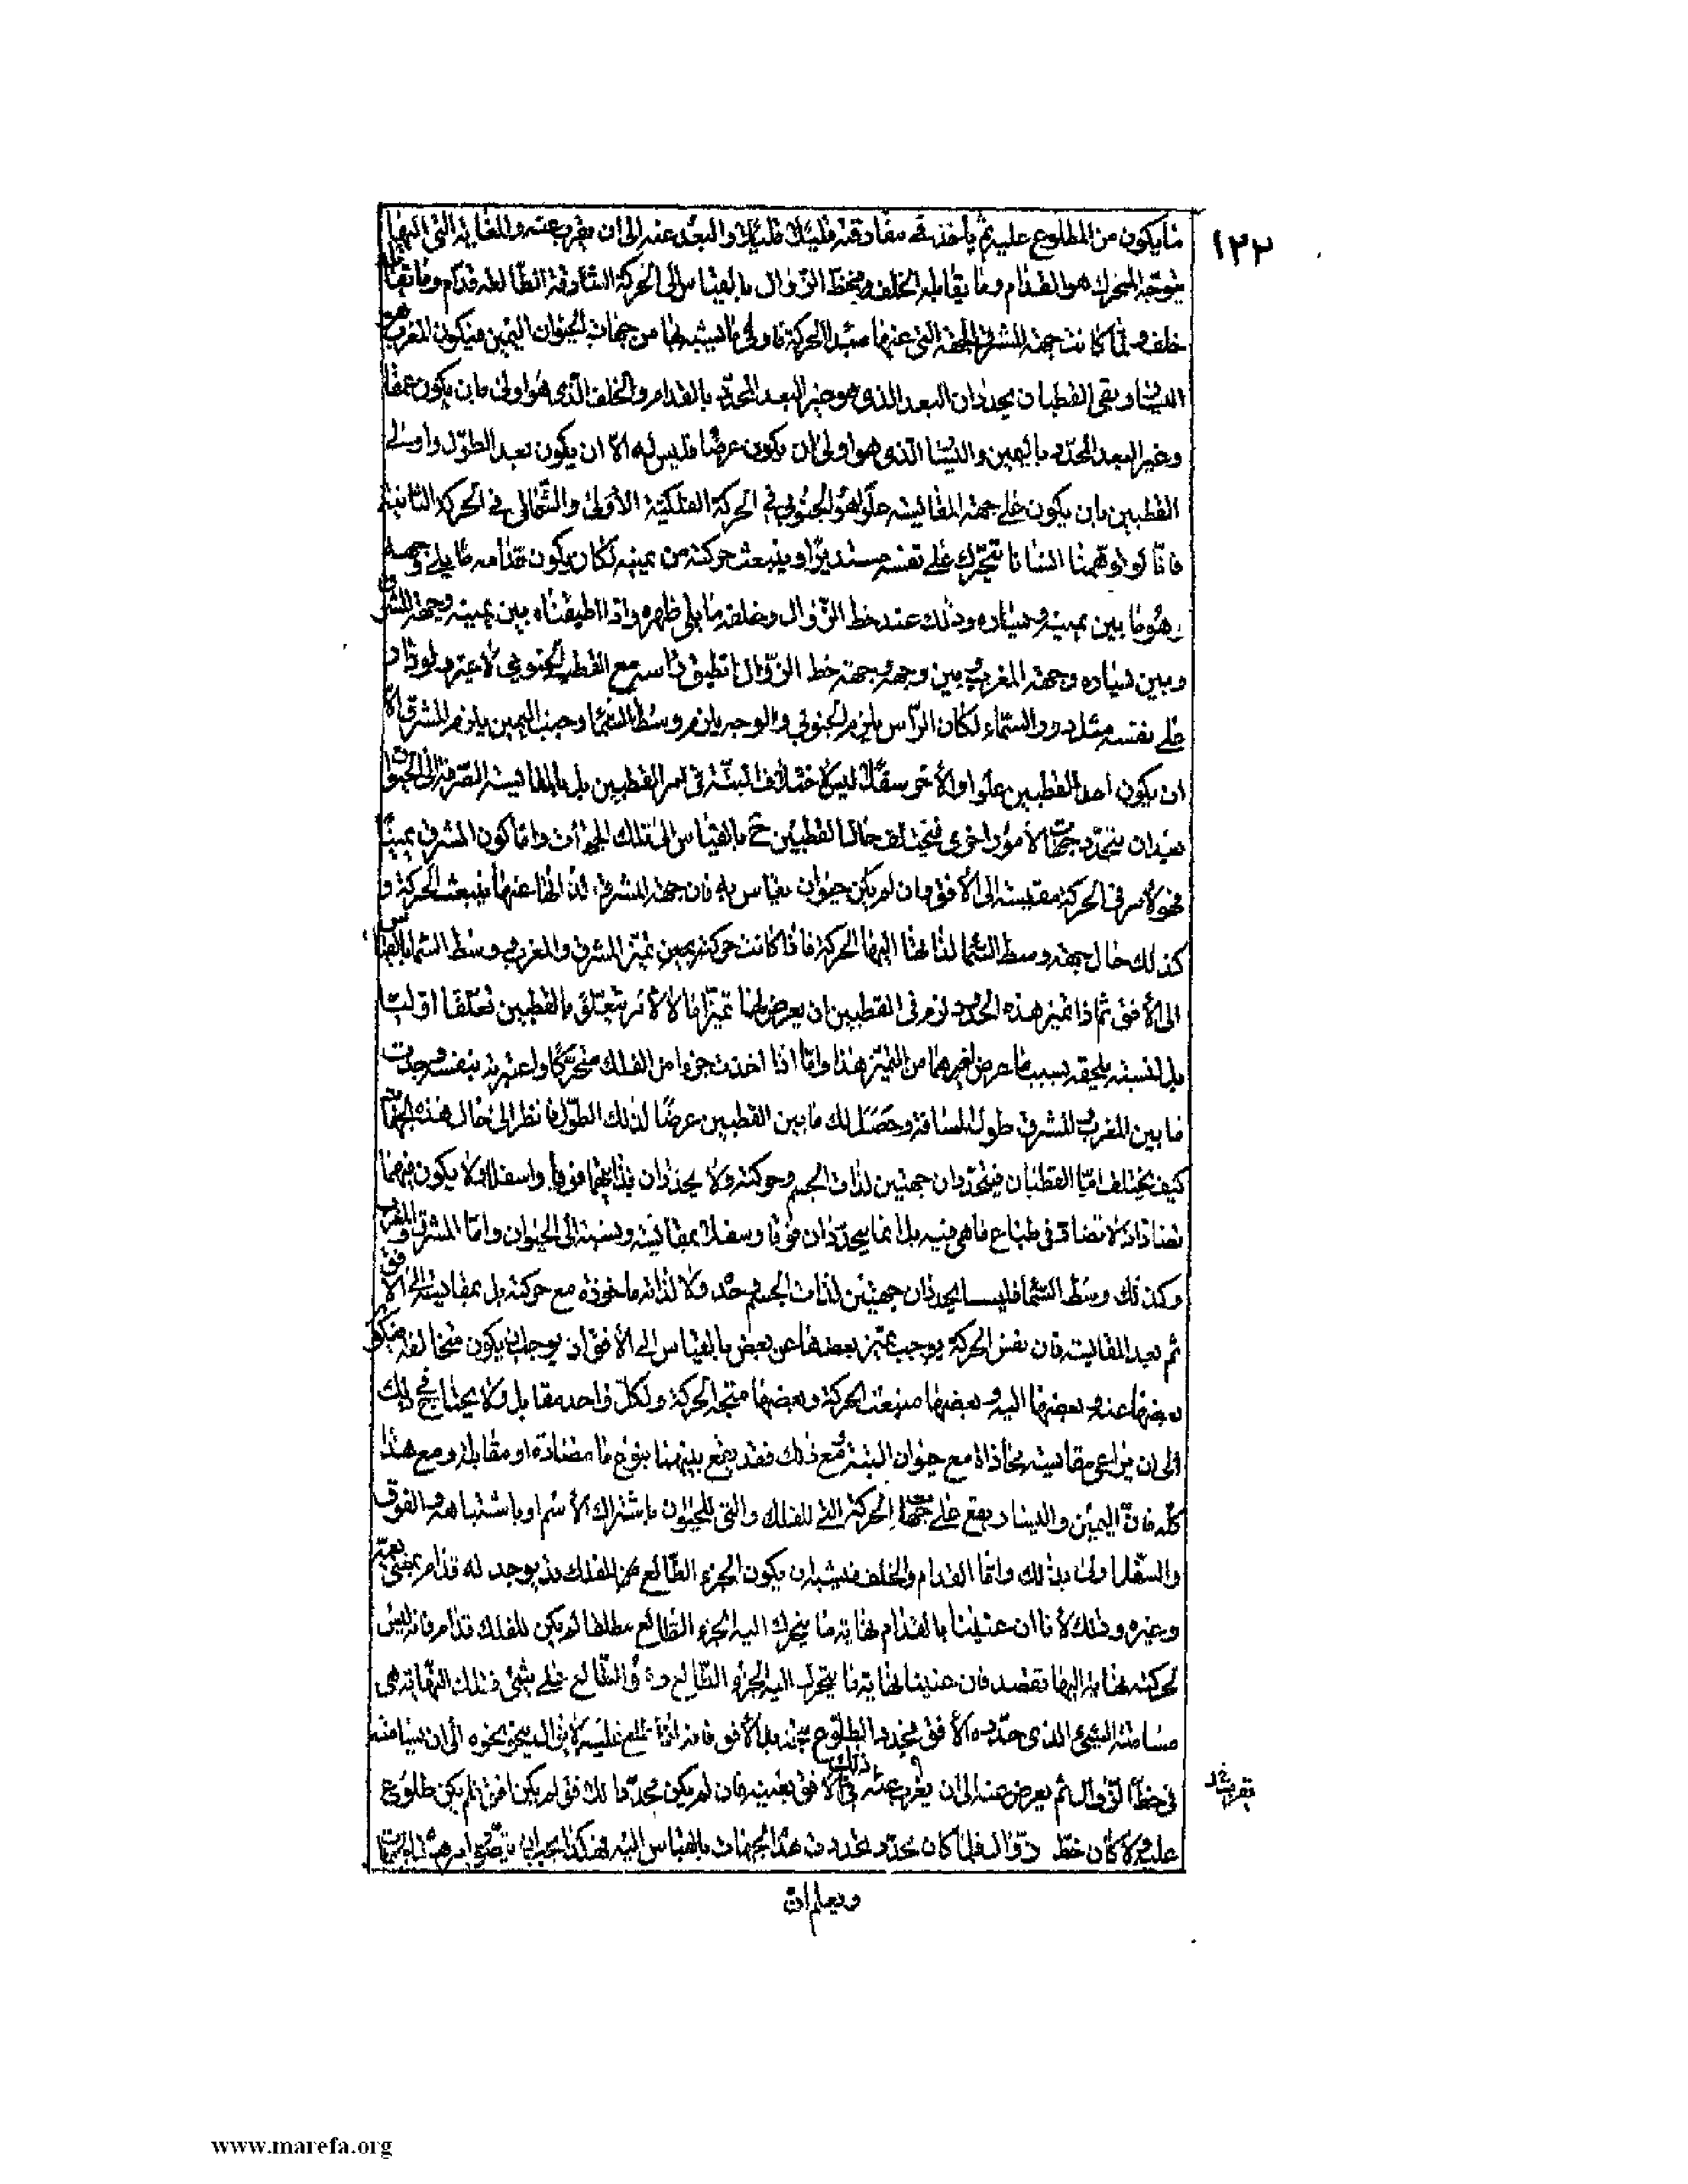 ١٢٢
ما يكون من المطلوع عليه ثم يأخذ في مفارقته قليلا قليلا والبعد عنه إلى أن يغرب عنه والغاية التي إليها
يتوجه المتحرك هو القدام وما يقابله الخلف فيخط الزوال بالقياس إلى الحركة الشارقة الطالعة قدام وما يقابله
خلف ولما كانت جهة المشرق الجهة التي عنها مبتدأ الحركة فأولى ما يشبه بها من جهات الحيوان اليمين فيكون المغرب هو
اليسار وبقى القطبان يحددان البعد الذي هو غير البعد المحدد بالقدام والخلف الذي هو أولى بان يكون عمقا
وغير البعد المحدد باليمين واليسار الذي هو أولى بان يكون عرضا فليس له الا ان يكون بعد الطول وأولى
القطبين بان يكون على جهة المقايسة علوا هو الجنوبي في الحركة الفلكية الأولى والشمالي في الحركة الثانية
فانا لو توهمنا انسانا يتحرك على نفسه مستديرا وينبعث حركته من يمينه لكان يكون قدامه ما يلي وجهه
وهو ما بين يمينه ويساره وذلك عند خط الزوال وخلفه ما يلي ظهره واذا طبقناه بين يمينه وجهة المشرق
وبين يساره وجهة المغرب وبين وجهه وجهة خط الزوال انطبق رأسه مع القطب الجنوبي لا غير ولو دار
على نفسه مثل دور السماء لكان الرأس يلزم الجنوبي والوجه يلزم وسط السماء وجنب اليمين يلزم المشرق الا
ان يكون احد القطبين علوا والآخر سفلا ليس لاختلاف البتة في امر القطبين بل بالمقايسة الصرفة إلى الحيوان
بعد ان يتحدد جهات لأمور اخرى فيختلف حال القطبين ح بالقياس إلى تلك الجهات واما كون المشرق يمينا
فهو لأمر في الحركة مقيسة إلى الأفق وان لم يكن حيوان يقاس به فان جهة المشرق لذاتها عنها ينبعث الحركة و
كذلك حال جهة وسط السماء لذاتها اليها الحركة فاذا كانت حركة يميز المشرق والمغرب وسط السماء بالقياس
إلى الأفق ثم اذا تميز هذه الحدود لزم في القطبين ان يعرض لهما تميز ما لا لأمر يتعلق بالقطبين تعلقا اوليا
بل لنسبة يلحقه بسبب ما عرض لغيرهما من التميز هذا واما اذا اخذت جزءا من الفلك متحركا واعتبرته بنفسه وجدت
ما بين المغرب والمشرق طول المسافة وحصل لك ما بين القطبين عرضا لذلك الطول فانظر إلى حال هذه الجهات
كيف يختلف اما القطبان فيحددان جهتين لذات الجسم وحركته ولا يحددان بذاتهما فوقا واسفلا ولا يكون بينهما
تضاد اذ لا تضاد في طباع ما هي فيه بل انما يحددان فوقا وسفلا بمقايسة ونسبة إلى الحيوان واما المشرق والمغرب
وكذلك وسط السماء فليسا يحددان جهتين لذات الجسم وحده ولا لذاته مأخوذة مع حركته بل بمقايسة إلى الأفق
ثم بعد المقايسة فان نفس الحركة يوجب تميز بعضها عن بعض بالقياس إلى الأفق اذ يوجب ان يكون متخالفة فيكون
بعضها عنه وبعضها اليه وبعضها منبعث الحركة وبعضها متجه الحركة ولكل واحد مقابل ولا يحتاج في ذلك
إلى ان يراعى مقايسة محاذاة مع حيوان البتة ومع ذلك فقد يقع بينهما نوع ما مضادة او مقابلة ومع هذا
كله فان اليمين واليسار يقع على جهات الحركة التي للفلك والتي للحيوان باشتراك الأسم او باشتباه والفوق
والسفل اولى بذلك واما القدام والخلف فيشبه ان يكون الجزء الطالع من الفلك قد يوجد له قدام بمعنى يعمه
وغيره وذلك لأنا ان عنينا بالقدام نهاية ما يتحرك اليه الجزء الطالع مطلقا لم يكن للفلك قدام فانه ليس
لحركته نهاية اليها تقصد فان عنينا نهاية ما يتحرك اليه الجزء الطالع والطالع على شيء فتلك النهاية هي
مسامتة الشيء الذي حدد به الأفق فيحدد الطلوع فانه اذا طلع عليه لا يزال ينحو نحوه إلى ان يسامته
في خط الزوال ثم يعرض عنه إلى ان يغرب عنه في ذلك الأفق بعينه فان لم يكن محدد ما لذلك افق لم يكن افق ولم يكن طلوع
عليه ولا كان خط زوال فلما كان محدد تحددت هذه الجهات بالقياس اليه فهكذا يجب ان يتصور امر هذه الجهات
ويعلم ان
www.marefa.org